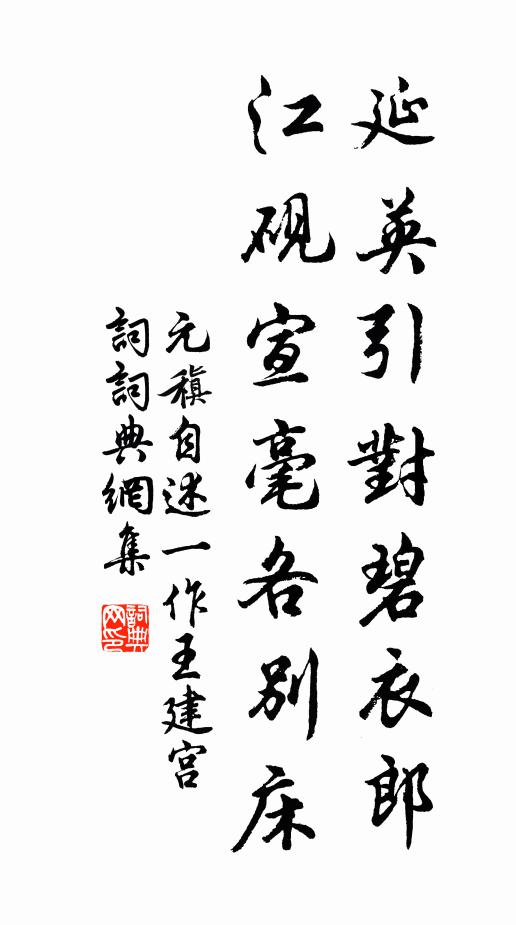 延英引對碧衣郎
江硯宣毫各別床
元稹自述一作王建宮
詞詞典網集
詞典網印